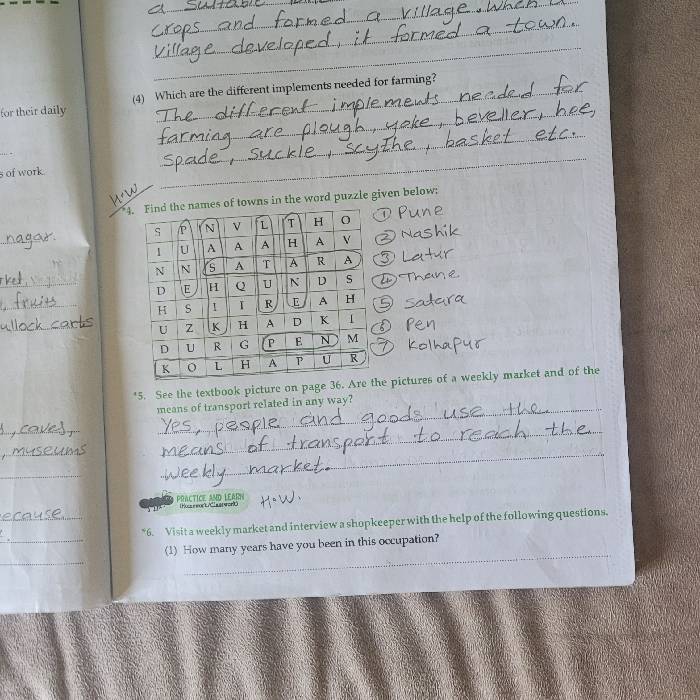 a suitable
crops and formed a village. When a
village developed, it formed a town.
(4) Which are the different implements needed for farming?
The different implements needed for
farming are plough, yoke, beveller, hoe,
spade, suckle, scythe, basket etc.
for their daily
s of work.
nagar.
rket
, fruits
ullock carts
, caves,
, museums
ecause
H.W
*4. Find the names of towns in the word puzzle given below:
S P N V L T H O
I U A A A H A V
N N S A T A R A
D E H Q U N D S
H S I I R E A H
U Z K H A D K I
D U R G P E N M
K O L H A P U R
① Pune
② Nashik
③ Latur
④ Thane
⑤ Satara
⑥ Pen
⑦ Kolhapur
*5. See the textbook picture on page 36. Are the pictures of a weekly market and of the
means of transport related in any way?
Yes, people and goods use the
means of transport to reach the
weekly market.
PRACTICE AND LEARN
(Homework/Classwork)
H.W.
*6. Visit a weekly market and interview a shopkeeper with the help of the following questions.
(1) How many years have you been in this occupation?